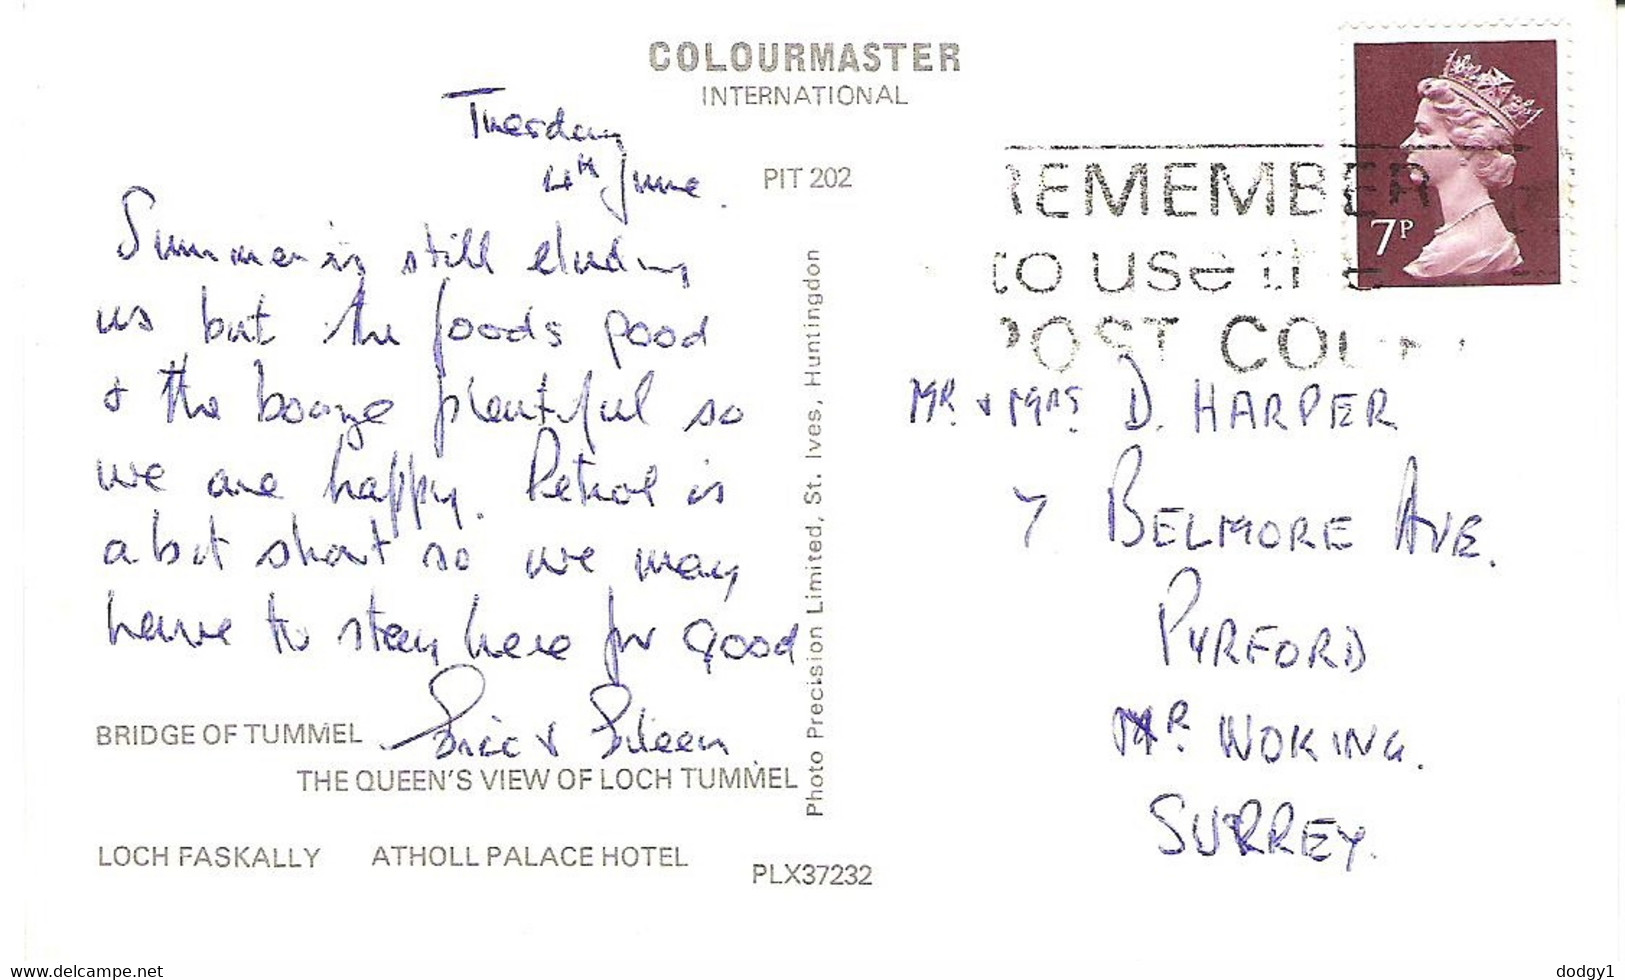 COLOURMASTER
INTERNATIONAL
PIT 202
Tuesday
4th June.
Summer is still eluding
us but the foods good
& the booze plentiful so
we are happy. Petrol is
a bit short so we may
have to stay here for good
Eric & Eileen
BRIDGE OF TUMMEL
THE QUEEN'S VIEW OF LOCH TUMMEL
LOCH FASKALLY ATHOLL PALACE HOTEL
PLX37232
Photo Precision Limited, St. Ives, Huntingdon
7P
REMEMBER
to use the
POST CO
MR. & MRS. D. HARPER
7 BELMORE AVE.
PYRFORD
NR. WOKING.
SURREY.
www.delcampe.net
dodgy1